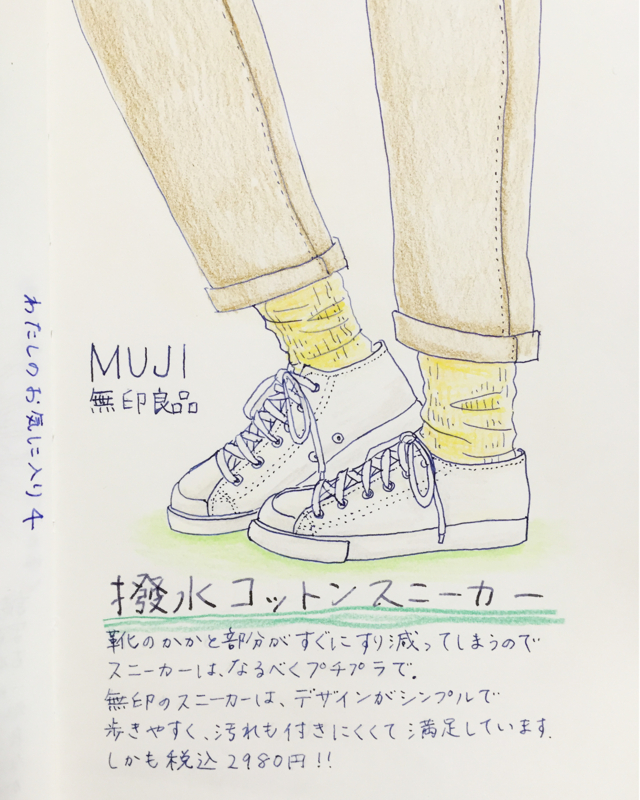 わたしのお気に入り4
MUJI
無印良品
撥水コットンスニーカー
靴のかかと部分がすぐにすり減ってしまうので
スニーカーは、なるべくプチプラで。
無印のスニーカーは、デザインがシンプルで
歩きやすく、汚れも付きにくくて満足しています。
しかも税込2980円!!